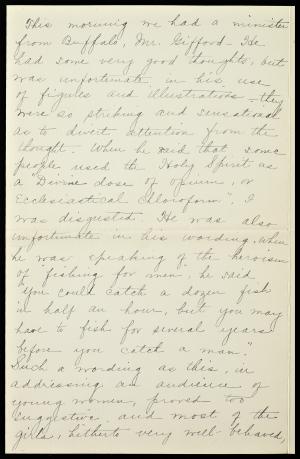 This morning we had a minister
from Buffalo, Mr. Gifford. He
had some very good thoughts, but
was unfortunate in his use
of figures and illustrations - they
were so striking and sensational
as to divert attention from the
thought. When he said that some
people used the Holy Spirit as
a "Divine dose of opium, or
Ecclesiastical Chloroform", I
was disgusted. He was also
unfortunate in his wording, when
he was speaking of the heroism
of "fishing for men". he said
"You could catch a dozen fish
in half an hour, but you may
have to fish for several years
before you catch a man."
Such a wording as this, in
addressing an audience of
young women, proved too
suggestive, and most of the
girls, hitherto very well-behaved,